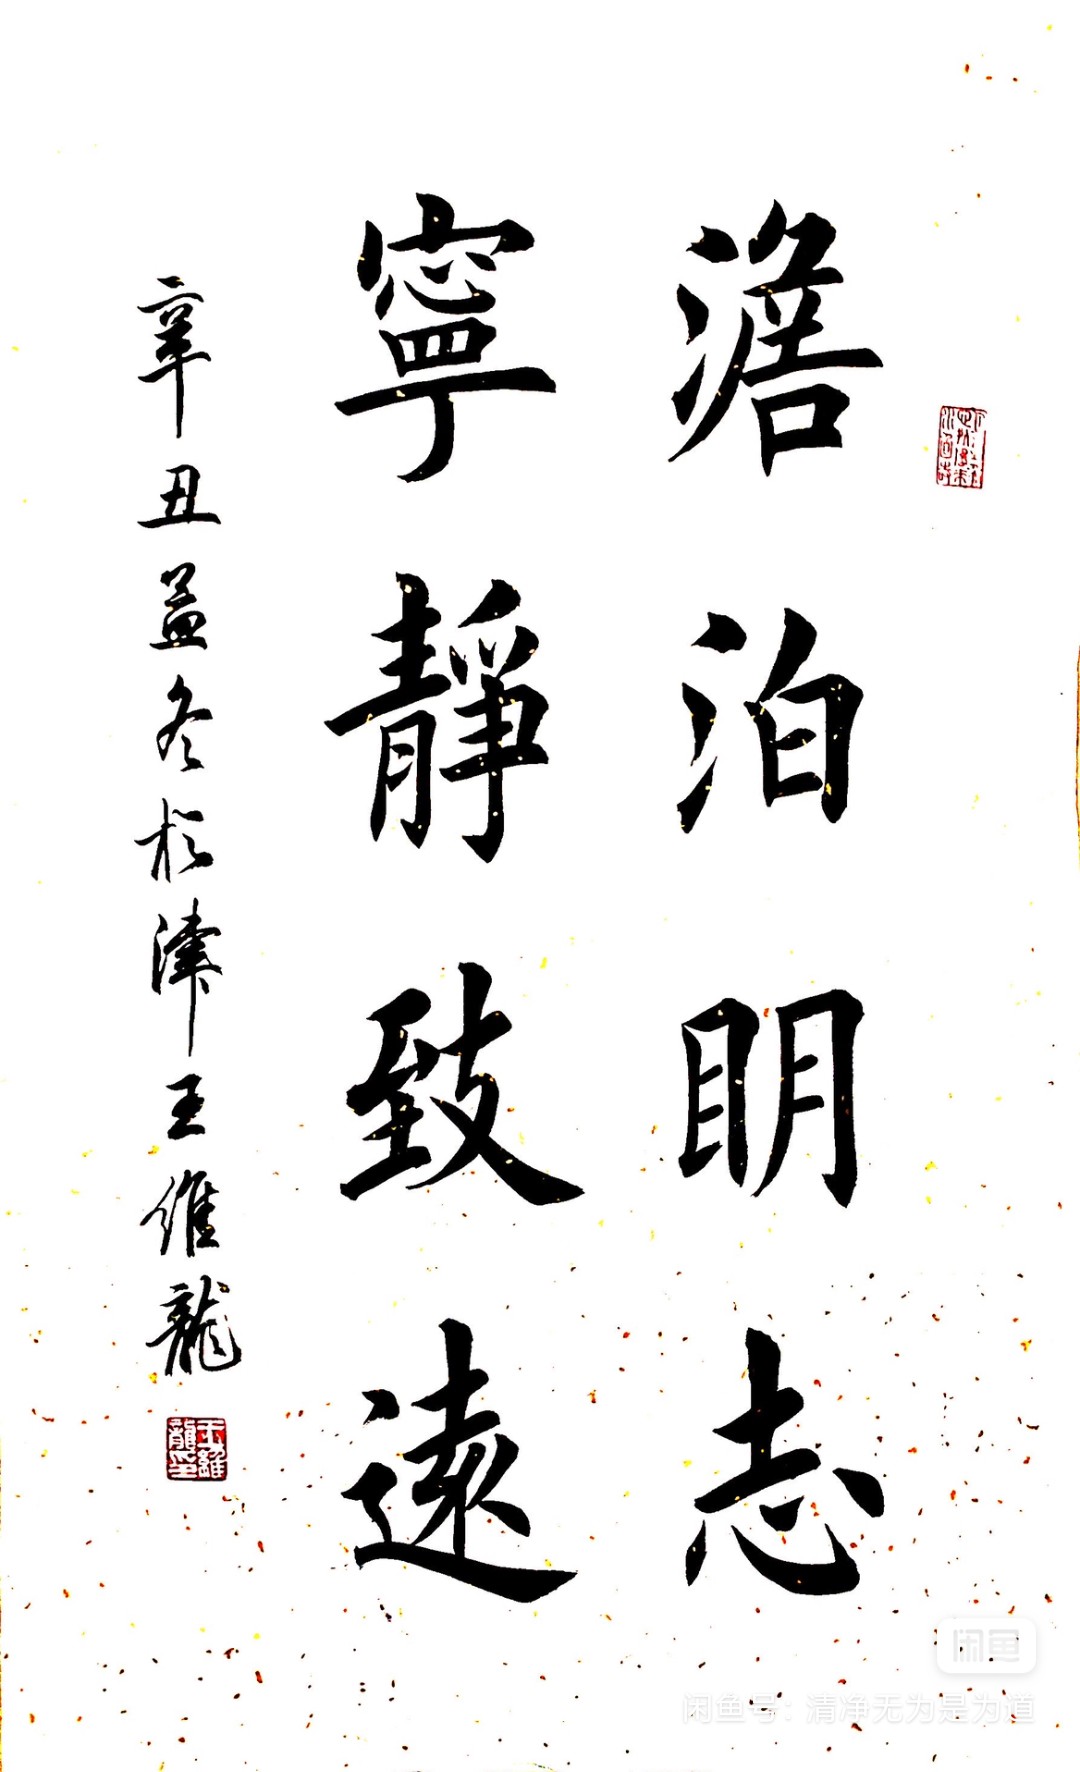 澹泊明志
寧靜致遠
辛丑孟冬於津王維龍
王維龍印
闲鱼
闲鱼号：清净无为是为道